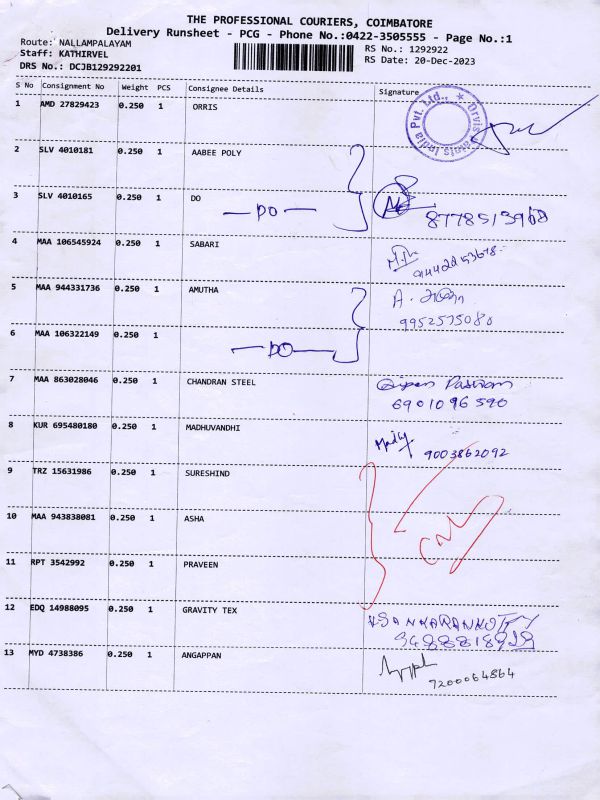 THE PROFESSIONAL COURIERS, COIMBATORE
Delivery Runsheet - PCG - Phone No.:0422-3505555 - Page No.:1
Route: NALLAMPALAYAM
Staff: KATHIRVEL
DRS No.: DCJB129292201
RS No.: 1292922
RS Date: 20-Dec-2023
S No Consignment No Weight PCS Consignee Details Signature
1 AMD 27829423 0.250 1 ORRIS
2 SLV 4010181 0.250 1 AABEE POLY
3 SLV 4010165 0.250 1 DO
— DO —
8778513968
4 MAA 106545924 0.250 1 SABARI
5 MAA 944331736 0.250 1 AMUTHA
9952575080
6 MAA 106322149 0.250 1
— DO —
7 MAA 863028046 0.250 1 CHANDRAN STEEL
6901096590
8 KUR 695480180 0.250 1 MADHUVANDHI
9003862092
9 TRZ 15631986 0.250 1 SURESHIND
10 MAA 943838081 0.250 1 ASHA
11 RPT 3542992 0.250 1 PRAVEEN
12 EDQ 14988095 0.250 1 GRAVITY TEX
13 MYD 4738386 0.250 1 ANGAPPAN
7200064864